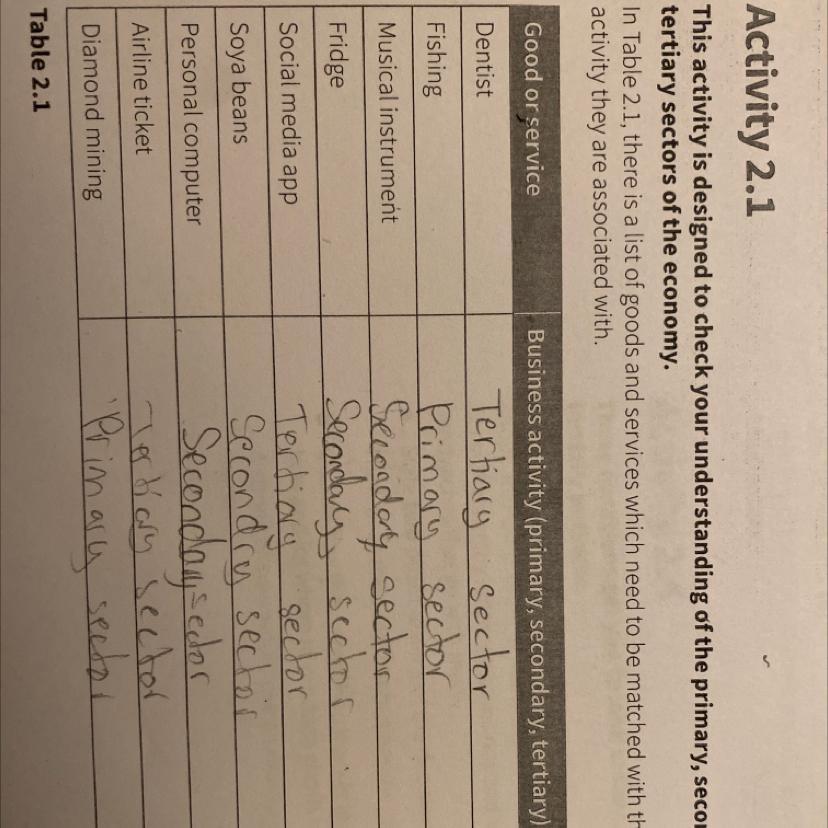 Activity 2.1
This activity is designed to check your understanding of the primary,
tertiary sectors of the economy.
In Table 2.1, there is a list of goods and services which need to be matched with
activity they are associated with.
Good or service Business activity (primary, secondary, tertiary)
Dentist Tertiary sector
Fishing Primary sector
Musical instrument Secondary sector
Fridge Secondary sector
Social media app Tertiary sector
Soya beans Secondry sector
Personal computer Seconday sector
Airline ticket Tertiary sector
Diamond mining Primary sector
Table 2.1